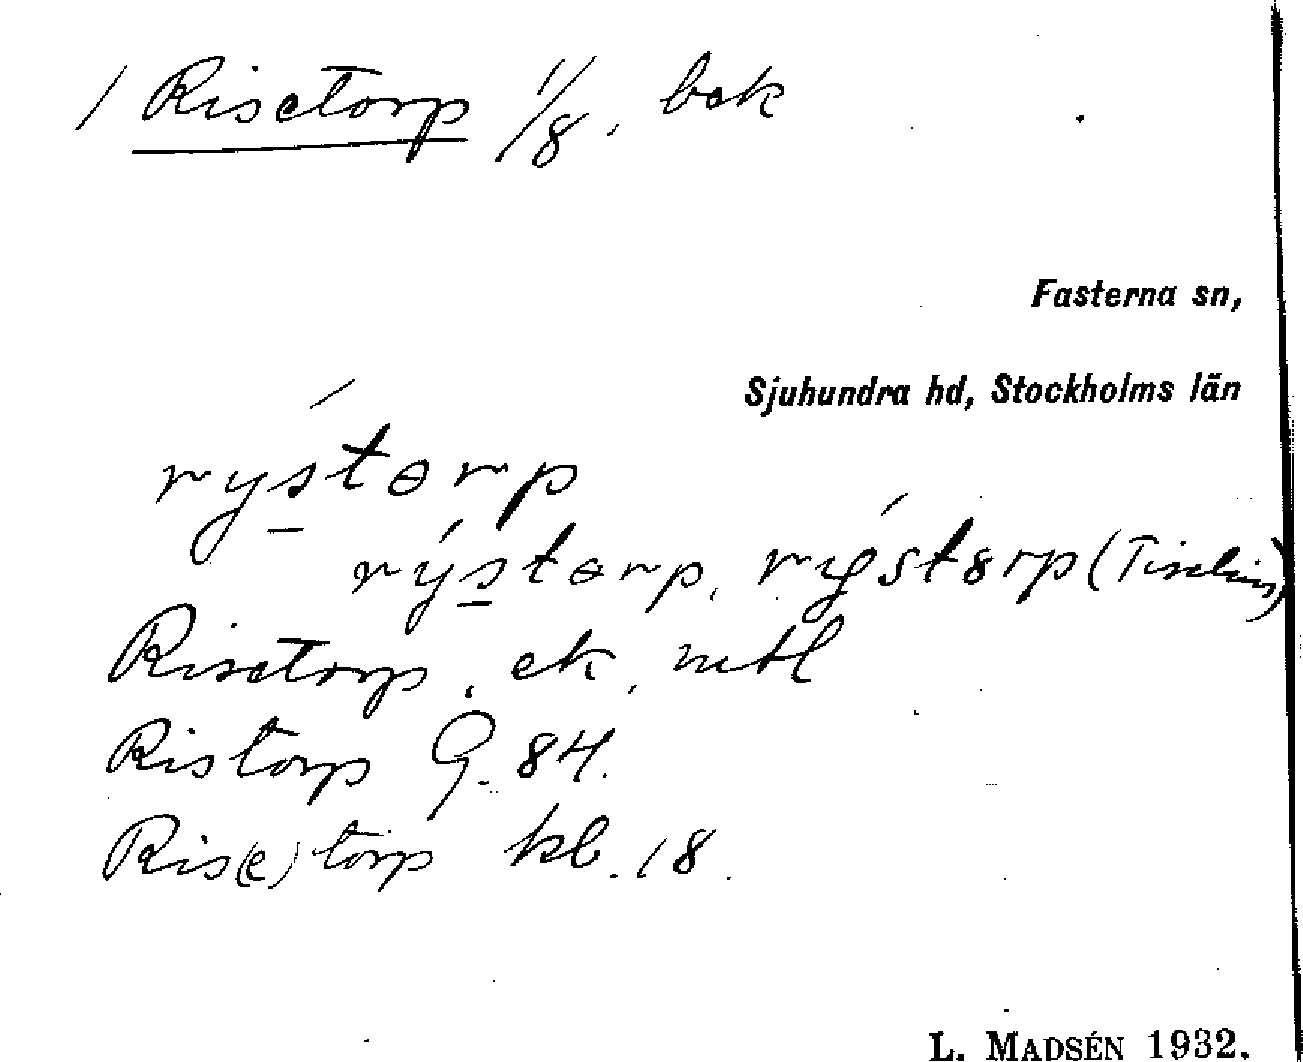 / Risetorp 1/8, bek
Fasterna sn,
Sjuhundra hd, Stockholms län
rystɵrp
rýstɵrp, rýstɵrp (Tiselius)
Risetorp, ek, mtl
Ristorp G. 84.
Ris(e)torp kb. 18.
L. MADSÉN 1932.